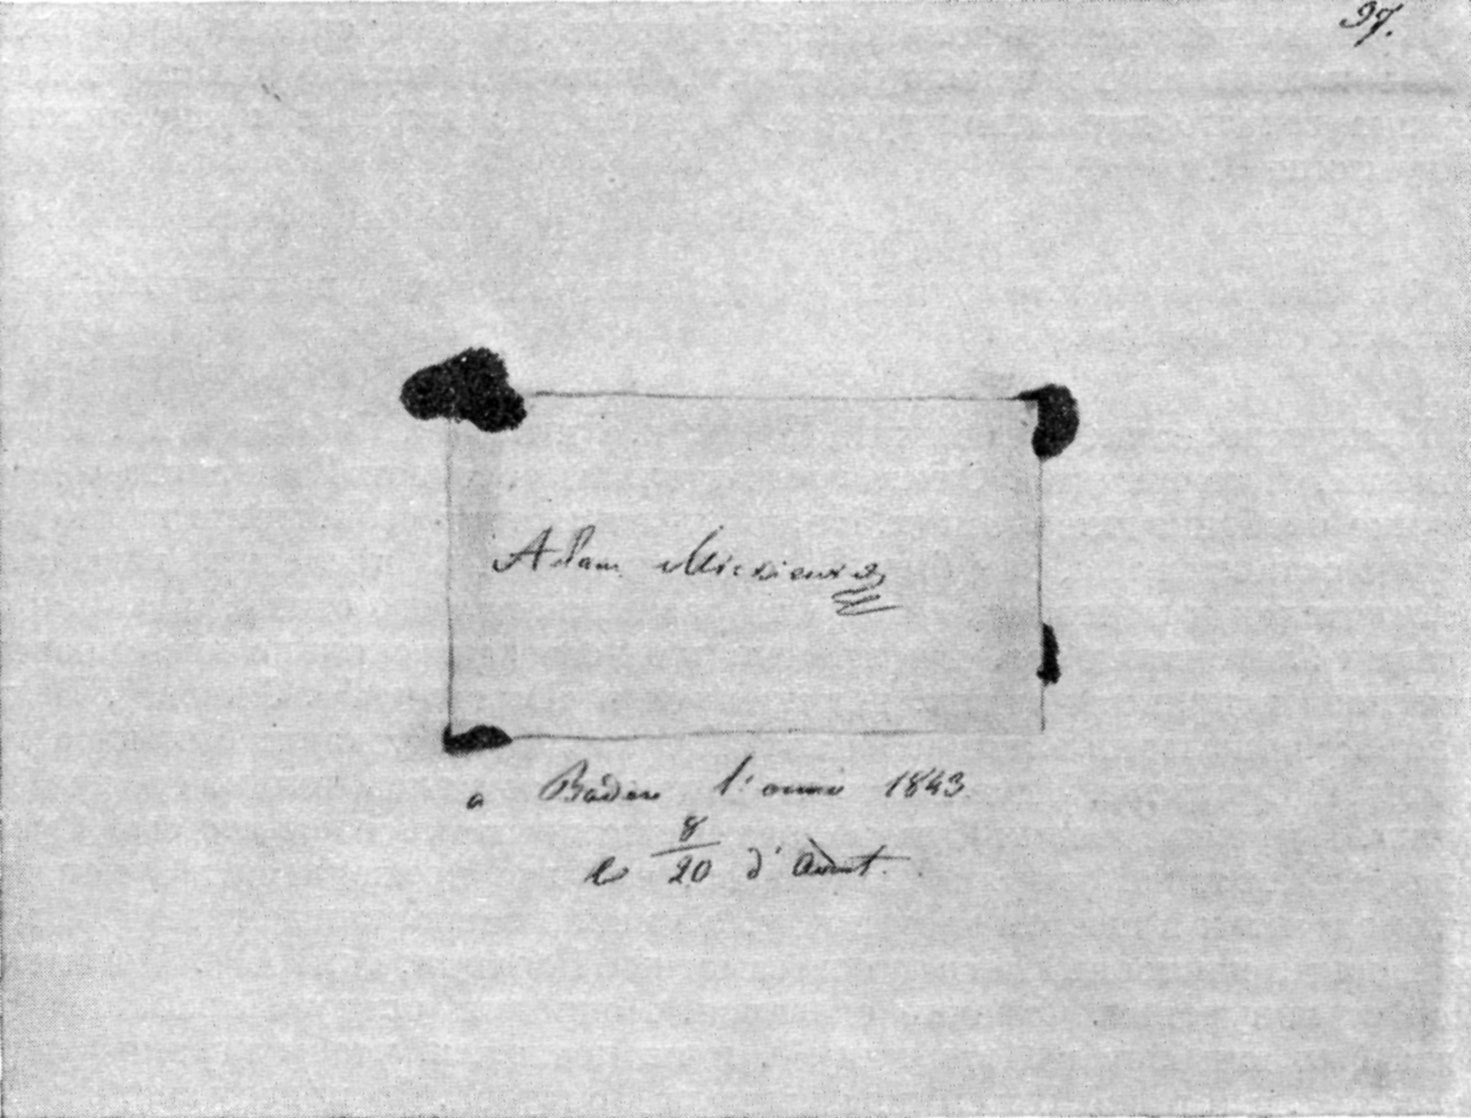 37.
Adam Mickiewicz
a Baden l'année 1843
le 8/20 d'Aout.